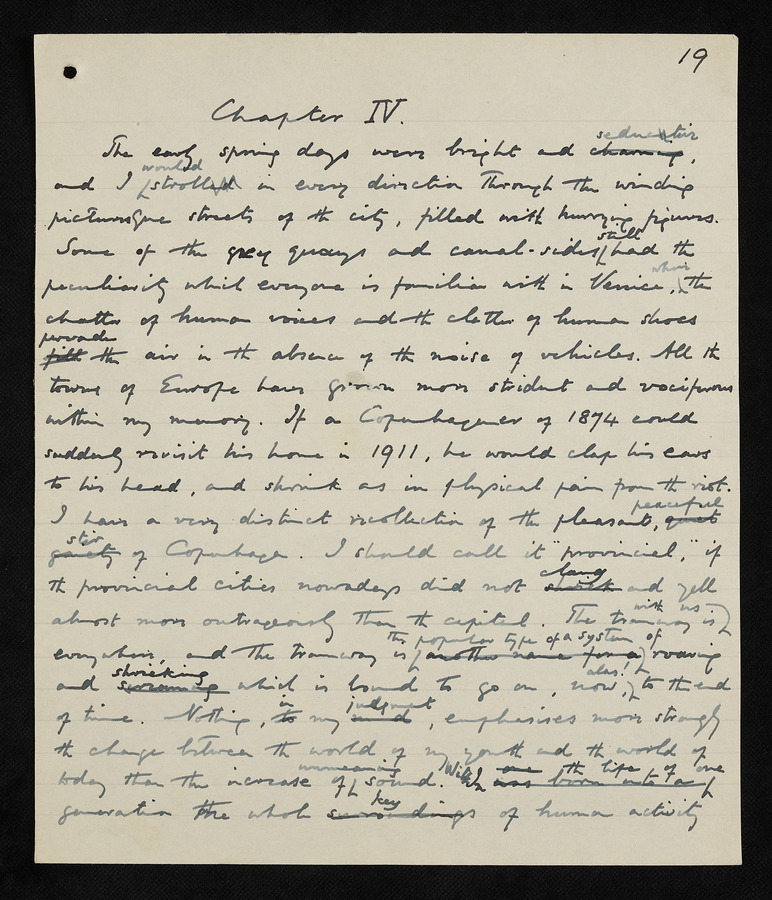 19
Chapter IV.
seductive
The early spring days were bright and charming,
would
and I strolled in every direction through the winding
picturesque streets of the city, filled with hurrying figures.
still
Some of the grey quays and canal-sides had the
where
peculiarity which everyone is familiar with in Venice, the
chatter of human voices and the clatter of human shoes
pervade
fill the air in the absence of the noise of vehicles. All the
towns of Europe have grown more strident and vociferous
within my memory. If a Copenhagener of 1874 could
suddenly revisit his home in 1911, he would clap his ears
to his head, and shrink as in physical pain from the riot.
peaceful
I have a very distinct recollection of the pleasant, quiet
stir
gaiety of Copenhagen. I should call it "provincial," if
clang
the provincial cities nowadays did not shriek and yell
almost more outrageously than the capital. The tramway is
with us
the popular type of a system of
everywhere, and the tramway is another name for a roaring
shrieking alas!
and screaming which is bound to go on, now, to the end
in judgment
of time. Nothing, to my mind, emphasises more strongly
the change between the world of my youth and the world of
unmeaning
today than the increase of sound. Within the life of one
was born into a
key
generation the whole surroundings of human activity